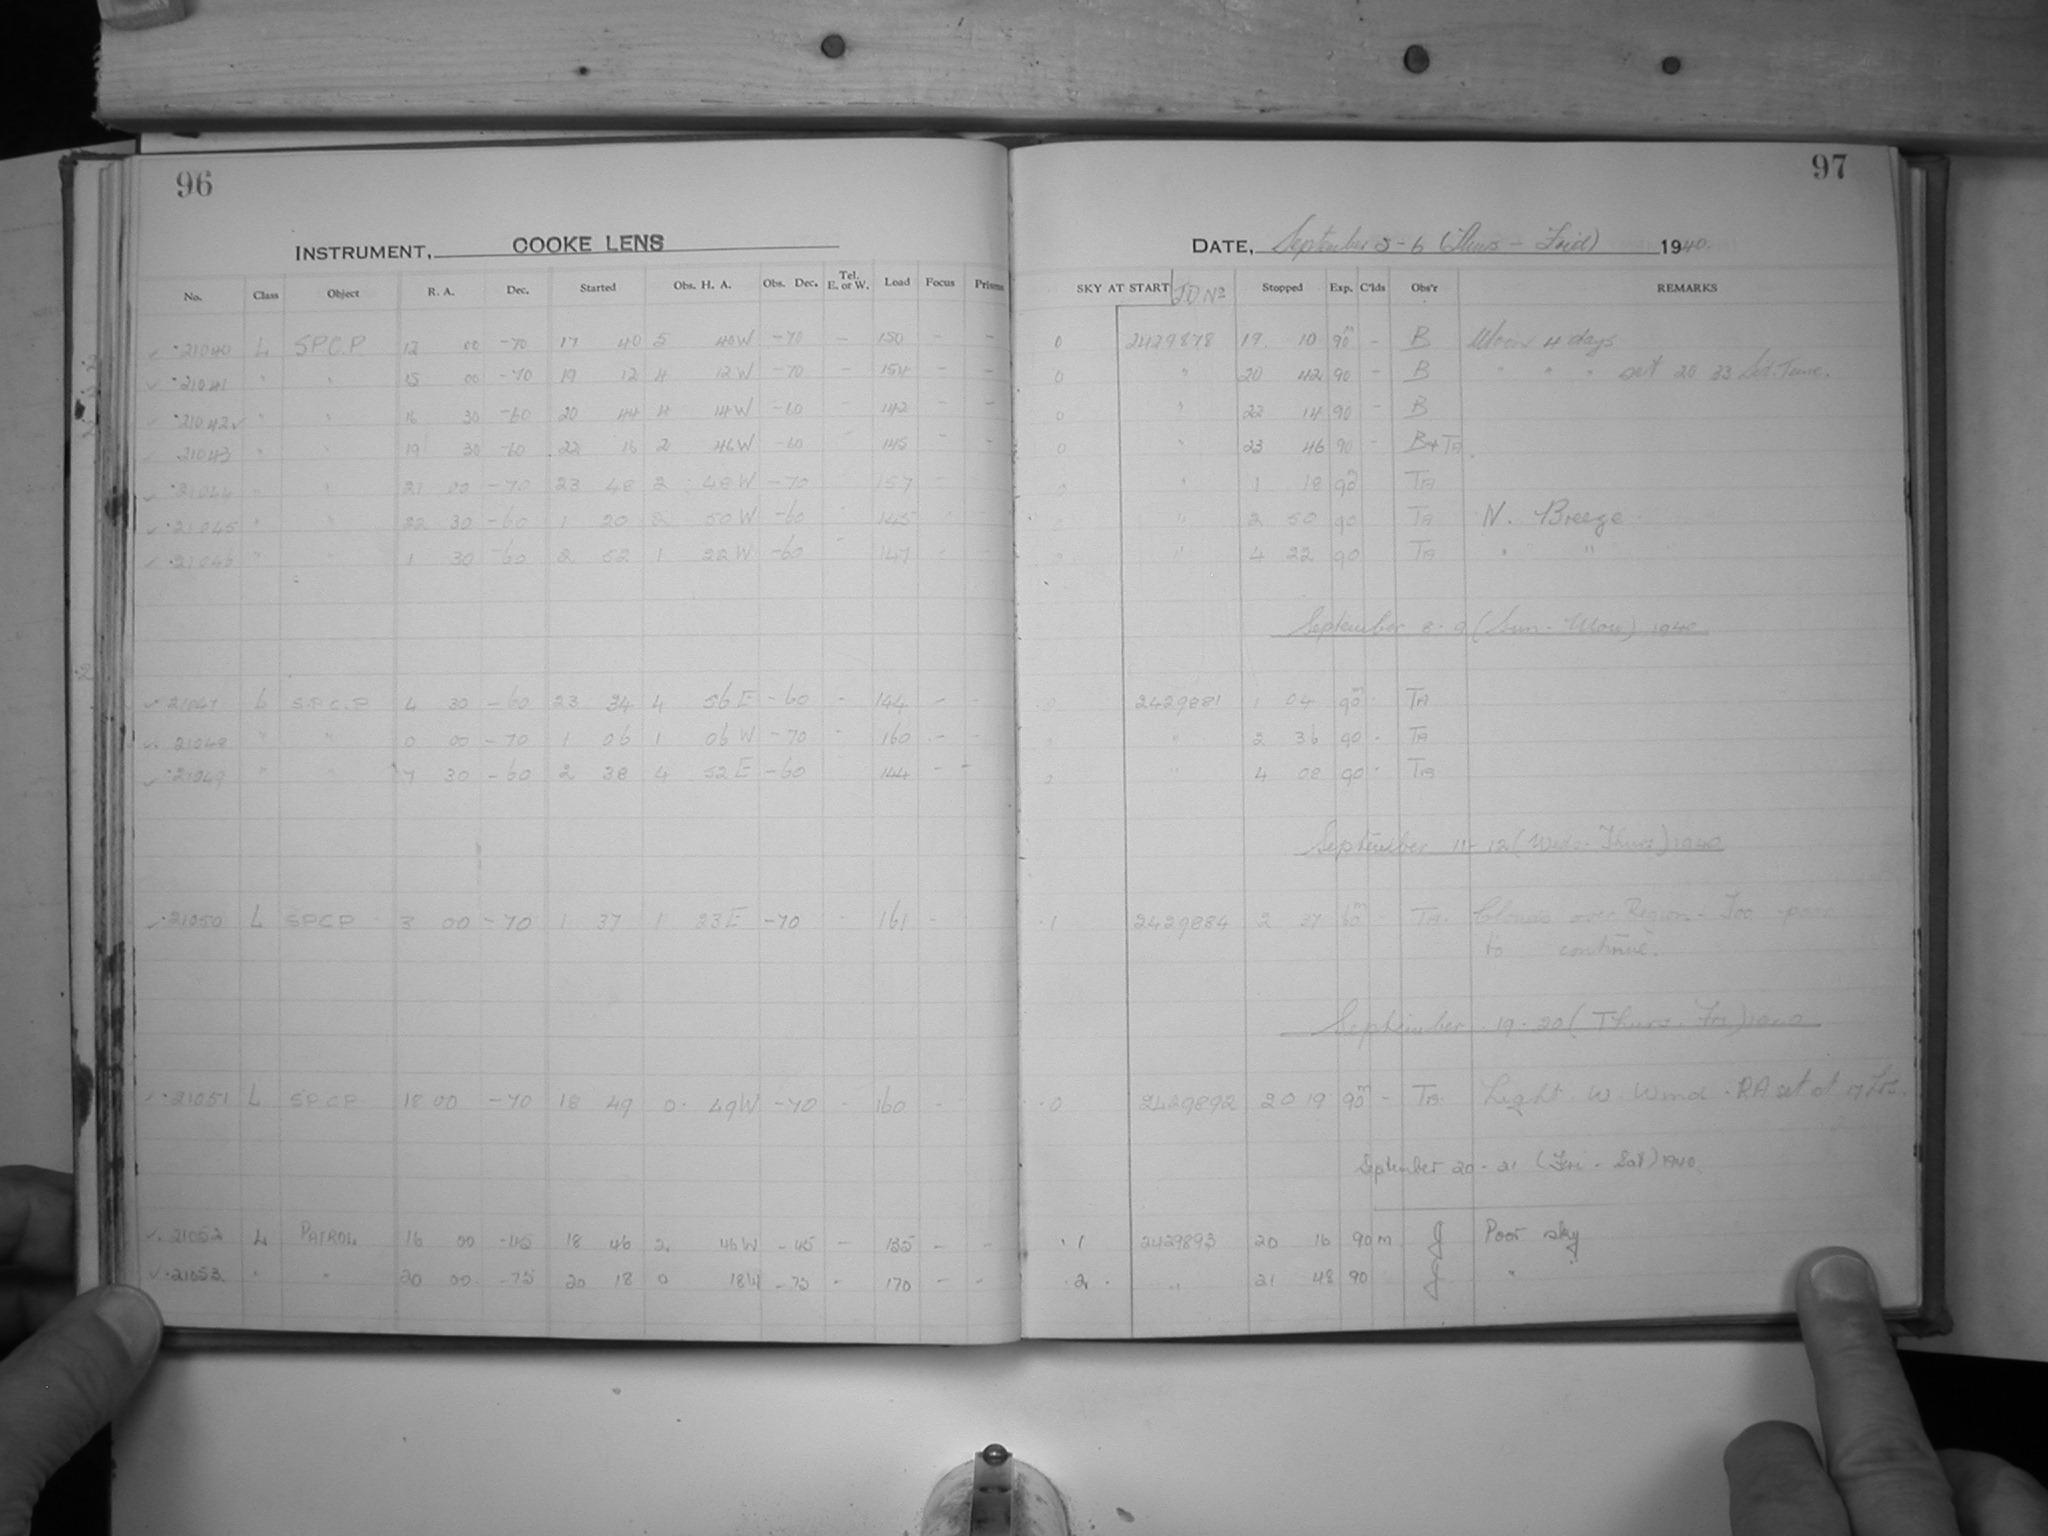 96
INSTRUMENT, COOKE LENS
No. Class Object R. A. Dec. Started Obs. H. A. Obs. Dec. Tel. E. or W. Load Focus Prisms
21040 L S.P.C.P 12 00 -70 17 40 5 40W -70 - 150 - -
21041 " " 15 00 -70 19 12 4 12W -70 - 154 - -
21042 " " 16 30 -60 20 44 4 14W -60 142 - -
21043 " " 19 30 -60 22 16 2 46W -60 145 - -
21044 " " 21 00 -70 23 48 2 48W -70 157
21045 " " 22 30 -60 1 20 2 50W -60 145
21046 " " 1 30 -60 2 52 1 22W -60 147
21047 L S.P.C.P 4 30 -60 23 34 4 56E -60 - 144 - -
21048 " " 0 00 -70 1 06 1 06W -70 - 160 - -
21049 " " 7 30 -60 2 38 4 52E -60 144 - -
21050 L SPCP 3 00 -70 1 37 1 23E -70 161 -
21051 L SPCP 18 00 -70 18 49 0 49W -70 - 160 -
21052 L PATROL 16 00 -45 18 46 2 46W -45 - 135 - -
21053 " " 20 00 -75 20 18 0 18W -75 - 170 - -
97
DATE, September 5-6 (Thurs - Frid) 1940.
SKY AT START JD No Stopped Exp. C'lds Obs'r REMARKS
0 2429878 19 10 90m - B Moon 4 days
0 " 20 42 90 - B " " " set 20 33 Sid. Time.
0 " 22 14 90 - B
0 " 23 46 90 - B+TA
0 " 1 18 90 TA
0 " 2 50 90 TA N. Breeze
0 " 4 22 90 TA " "
September 8-9 (Sun - Mon) 1940
0 2429881 1 04 90m - TA
" 2 36 90 - TA
0 " 4 08 90 - TA
September 11-12 (Wed - Thurs) 1940
1 2429884 2 37 60m - TA. Clouds over Region - Too poor
to continue.
September 19-20 (Thurs - Fri) 1940
0 2429892 20 19 90m - TA. Light W. Wind - RA set at 17 hrs.
September 20-21 (Fri - Sat) 1940.
1 2429893 20 16 90m J Poor sky
2 " 21 48 90 J "